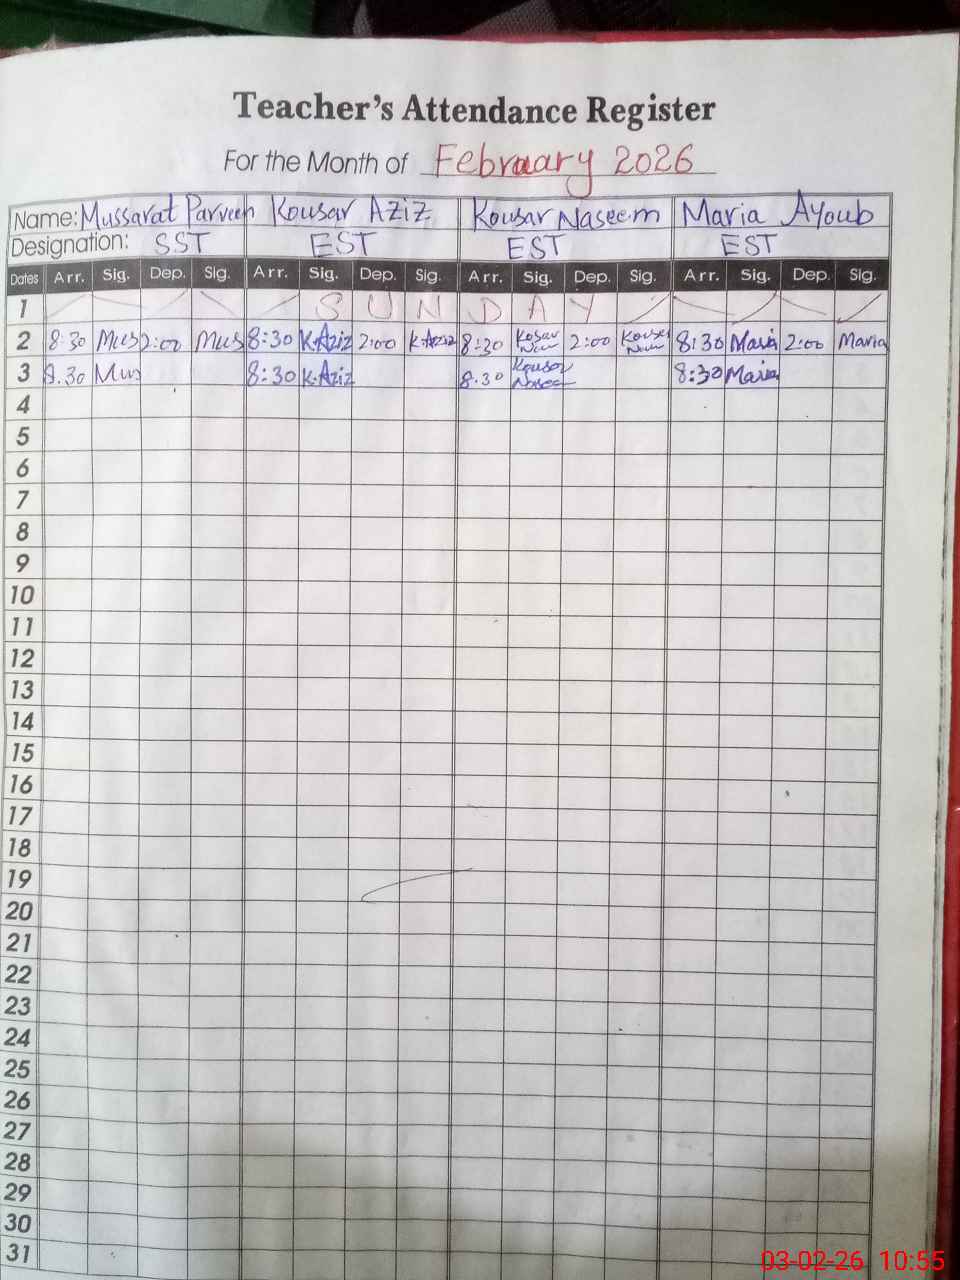 Teacher's Attendance Register
For the Month of February 2026
Name: Mussarat Parveen Kousar Aziz Kousar Naseem Maria Ayoub
Designation: SST EST EST EST
Dates Arr. Sig. Dep. Sig. Arr. Sig. Dep. Sig. Arr. Sig. Dep. Sig. Arr. Sig. Dep. Sig.
1 SUNDAY
2 8:30 Mus 2:00 Mus 8:30 K.Aziz 2:00 K.Aziz 8:30 2:00 8:30 Maria 2:00 Maria
3 8.30 Mus 8:30 K.Aziz 8.30 Kousar Naseem 8:30 Maria
4
5
6
7
8
9
10
11
12
13
14
15
16
17
18
19
20
21
22
23
24
25
26
27
28
29
30
31
03-02-26 10:55